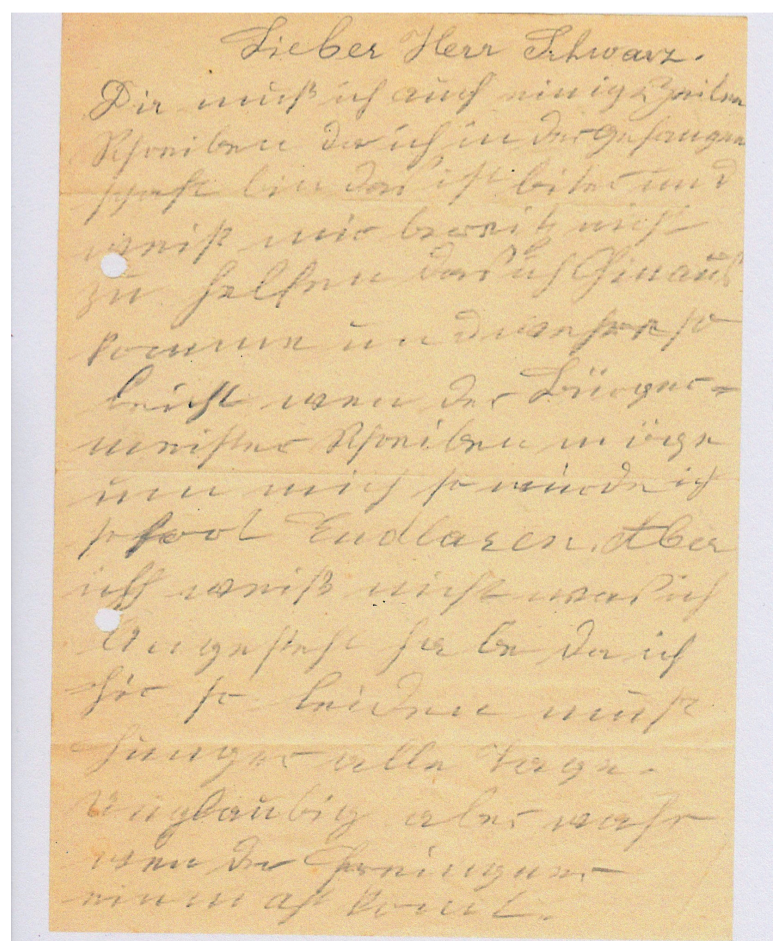 Lieber Herr Schwarz.
Dir muß ich auch einige Zeilen
Schreiben da ich in der gefangen
schaft bin das ist biter und
weiß mir bereits nicht
zu helfen das ich hinaus
komme und so
leicht wen der Bürger=
meister Schreiben möge
um mich so würde ich
sofort Endlasen. Aber
ich weiß nicht was ich
Angesteht habe da ich
hir so leiden muß
hunger alle tage.
Unglaubig aber wahr
wen der
einmahl komt.